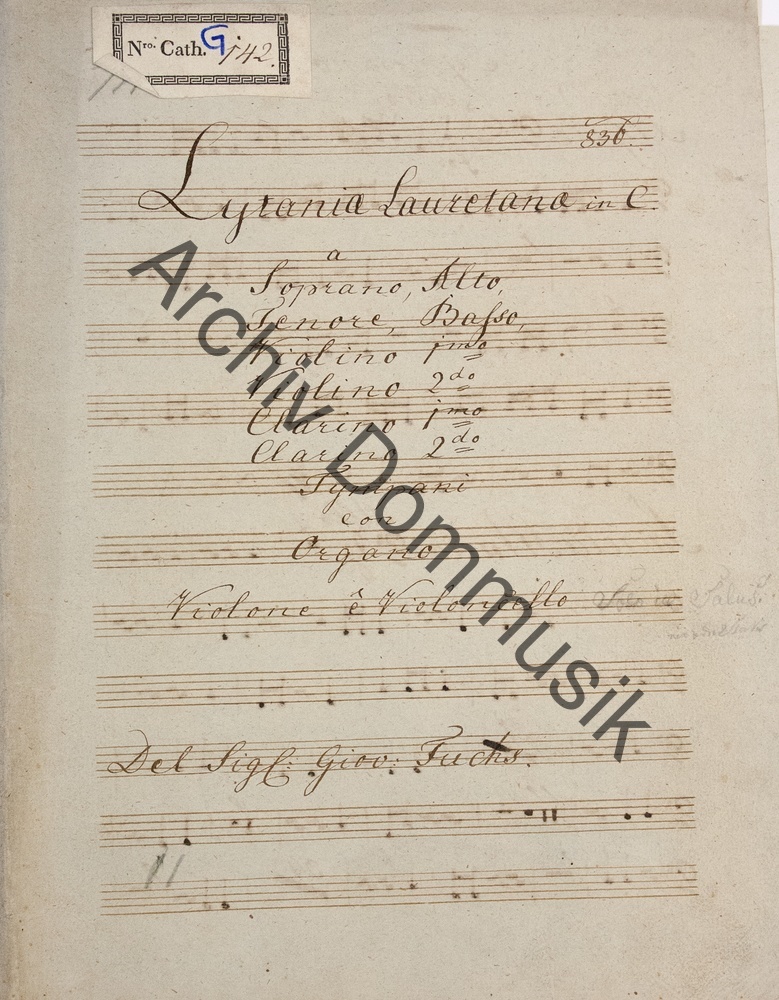 Nro. Cath. G 142.
836.
Lytaniæ Lauretanæ in C
a
Soprano, Alto,
Tenore, Basso,
Violino 1mo
Violino 2do
Clarino 1mo
Clarino 2do
Tympani
con
Organo
Violone è Violoncello
Solo in Salus
Del Sigl: Giov: Fuchs.
11
Archiv Dommusik